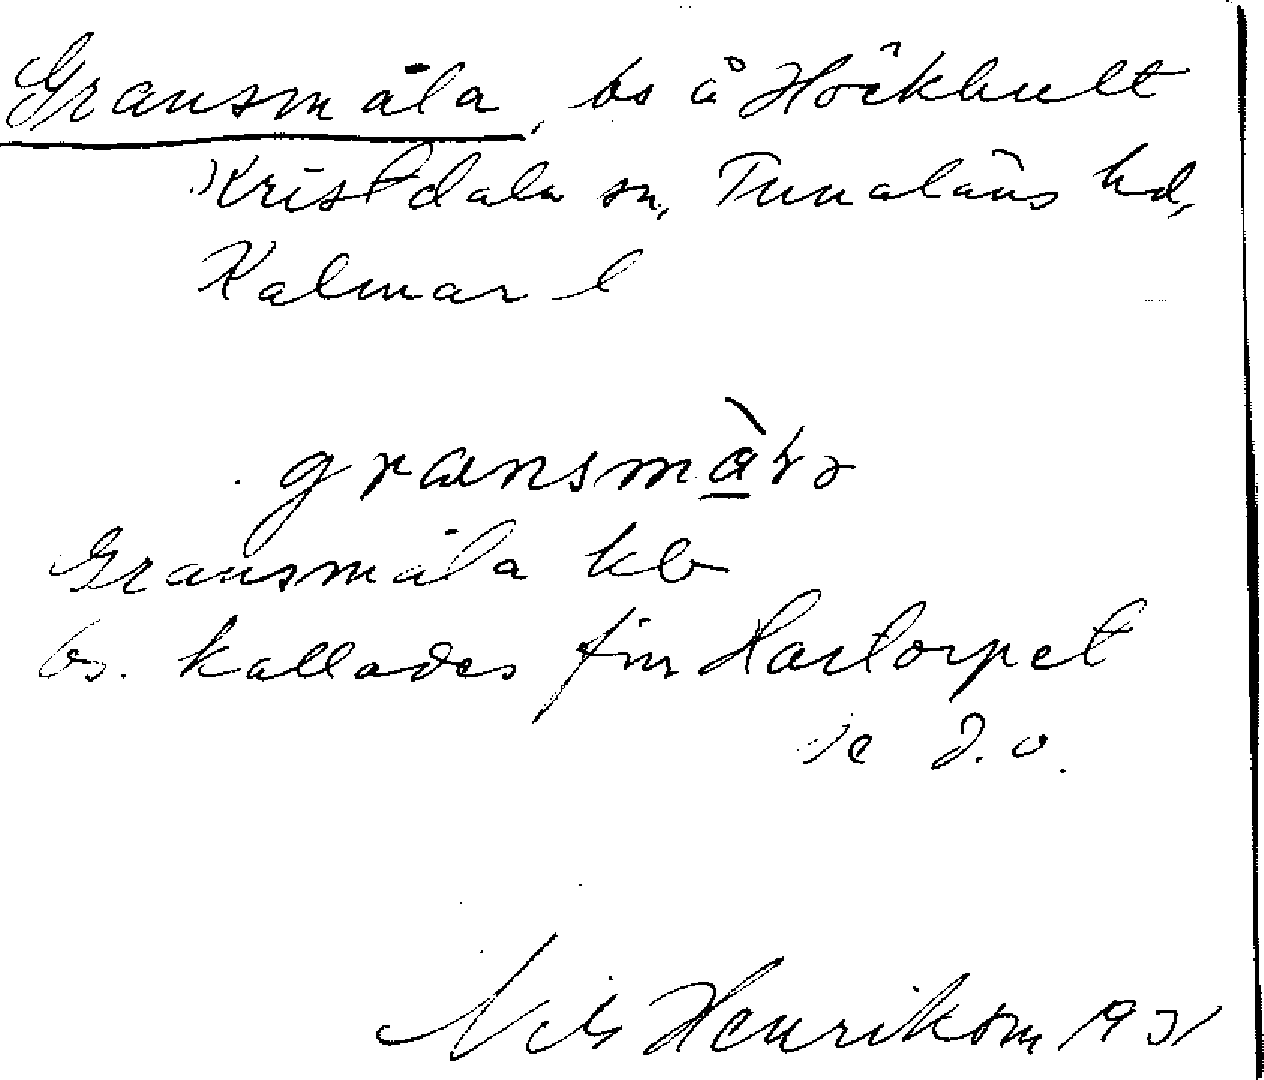 Gransmåla, bs å Hökhult
Kristdala sn, Tunaläns hd,
Kalmar l
gransmà̱
Gransmåla kb
bs. kallades förr Hartorpet
se d.o.
Nils Henrikson 1931